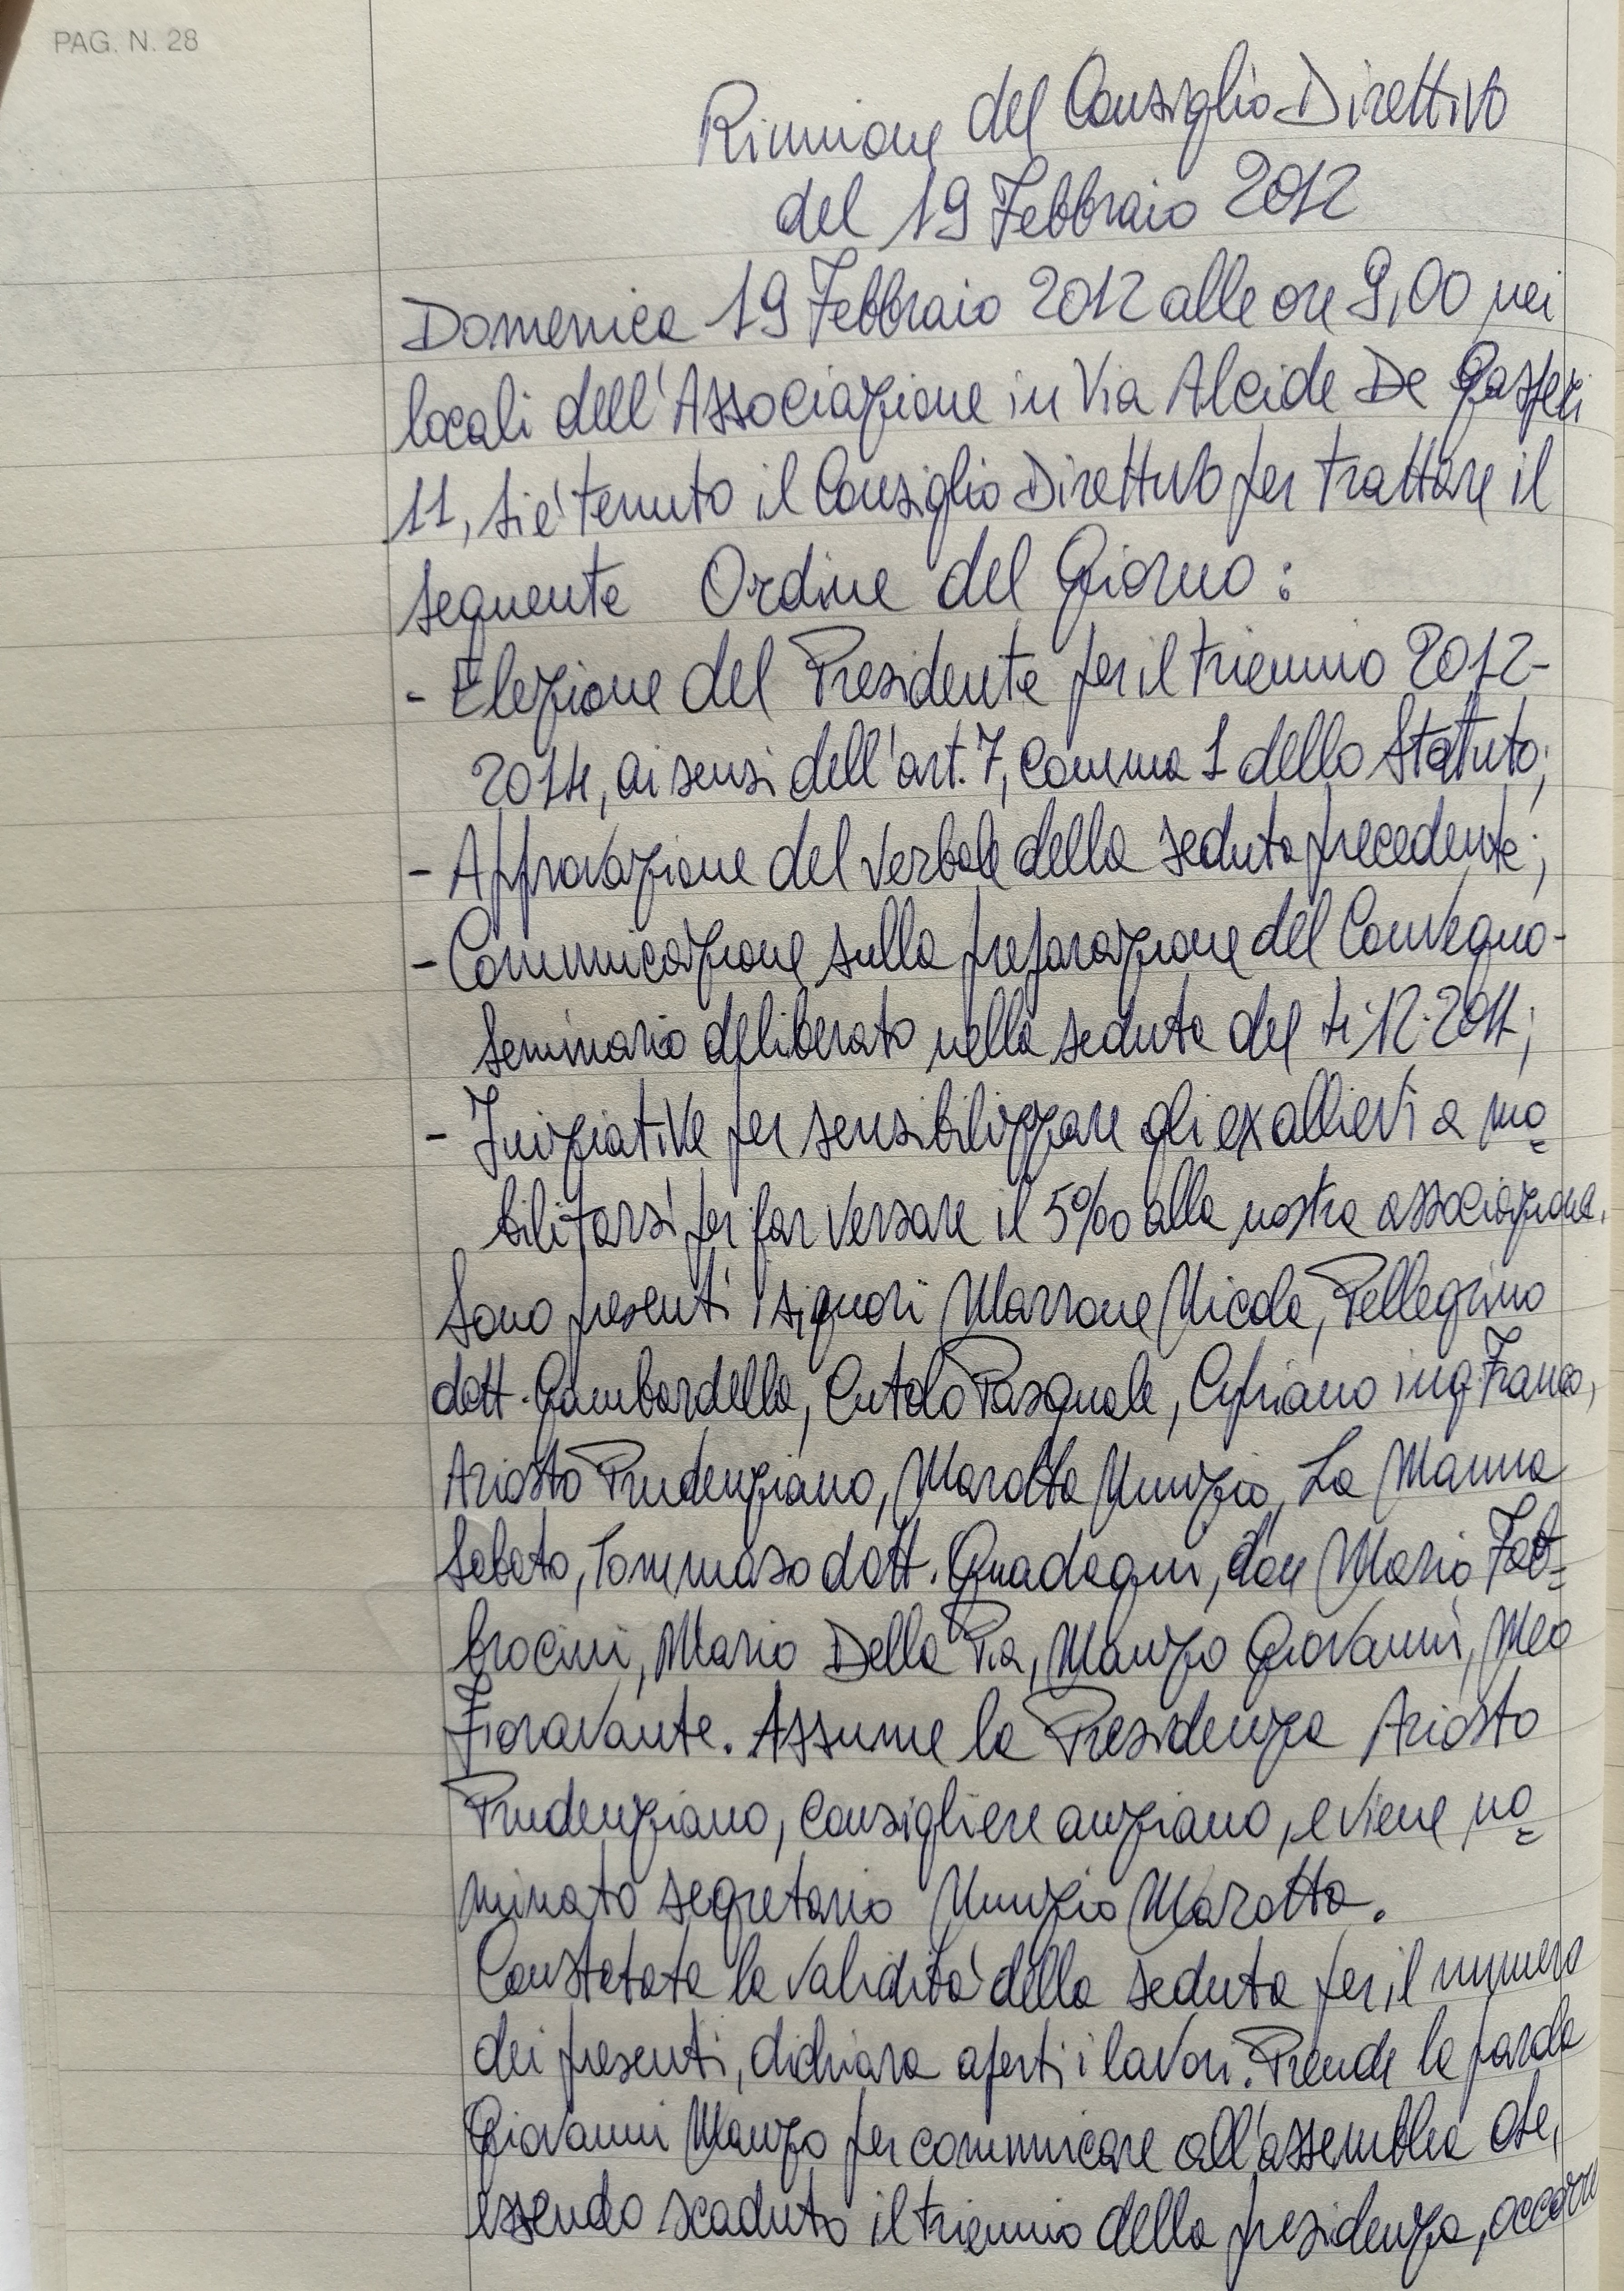 PAG. N. 28
Riunione del Consiglio Direttivo
del 19 Febbraio 2012
Domenica 19 Febbraio 2012 alle ore 9,00 nei
locali dell'Associazione in Via Alcide De Gasperi
11, si è tenuto il Consiglio Direttivo per trattare il
seguente Ordine del Giorno:
- Elezione del Presidente per il triennio 2012-
2014, ai sensi dell'art. 7, comma 1 dello Statuto;
- Approvazione del verbale della seduta precedente;
- Comunicazione sulla preparazione del Convegno-
Seminario deliberato nella seduta del 4.12.2011;
- Iniziative per sensibilizzare gli ex allievi a mo=
bilitarsi per far versare il 5‰ alla nostra associazione.
Sono presenti i signori Marrone Nicola, Pellegrino
dott. Gambardella, Cutolo Pasquale, Cipriano ing. Franco,
Ariosto Prudenziano, Marotta Nunzio, La Manna
Sabato, Tommaso dott. Guadagni, don Mario Fab=
brocini, Mario Della Pia, Manzo Giovanni, Meo
Fioravante. Assume la Presidenza Ariosto
Prudenziano, consigliere anziano, e viene no=
minato segretario Nunzio Marotta.
Constatata la validità della seduta per il numero
dei presenti, dichiara aperti i lavori. Prende la parola
Giovanni Manzo per comunicare all'assemblea che,
essendo scaduto il triennio della presidenza, occorre